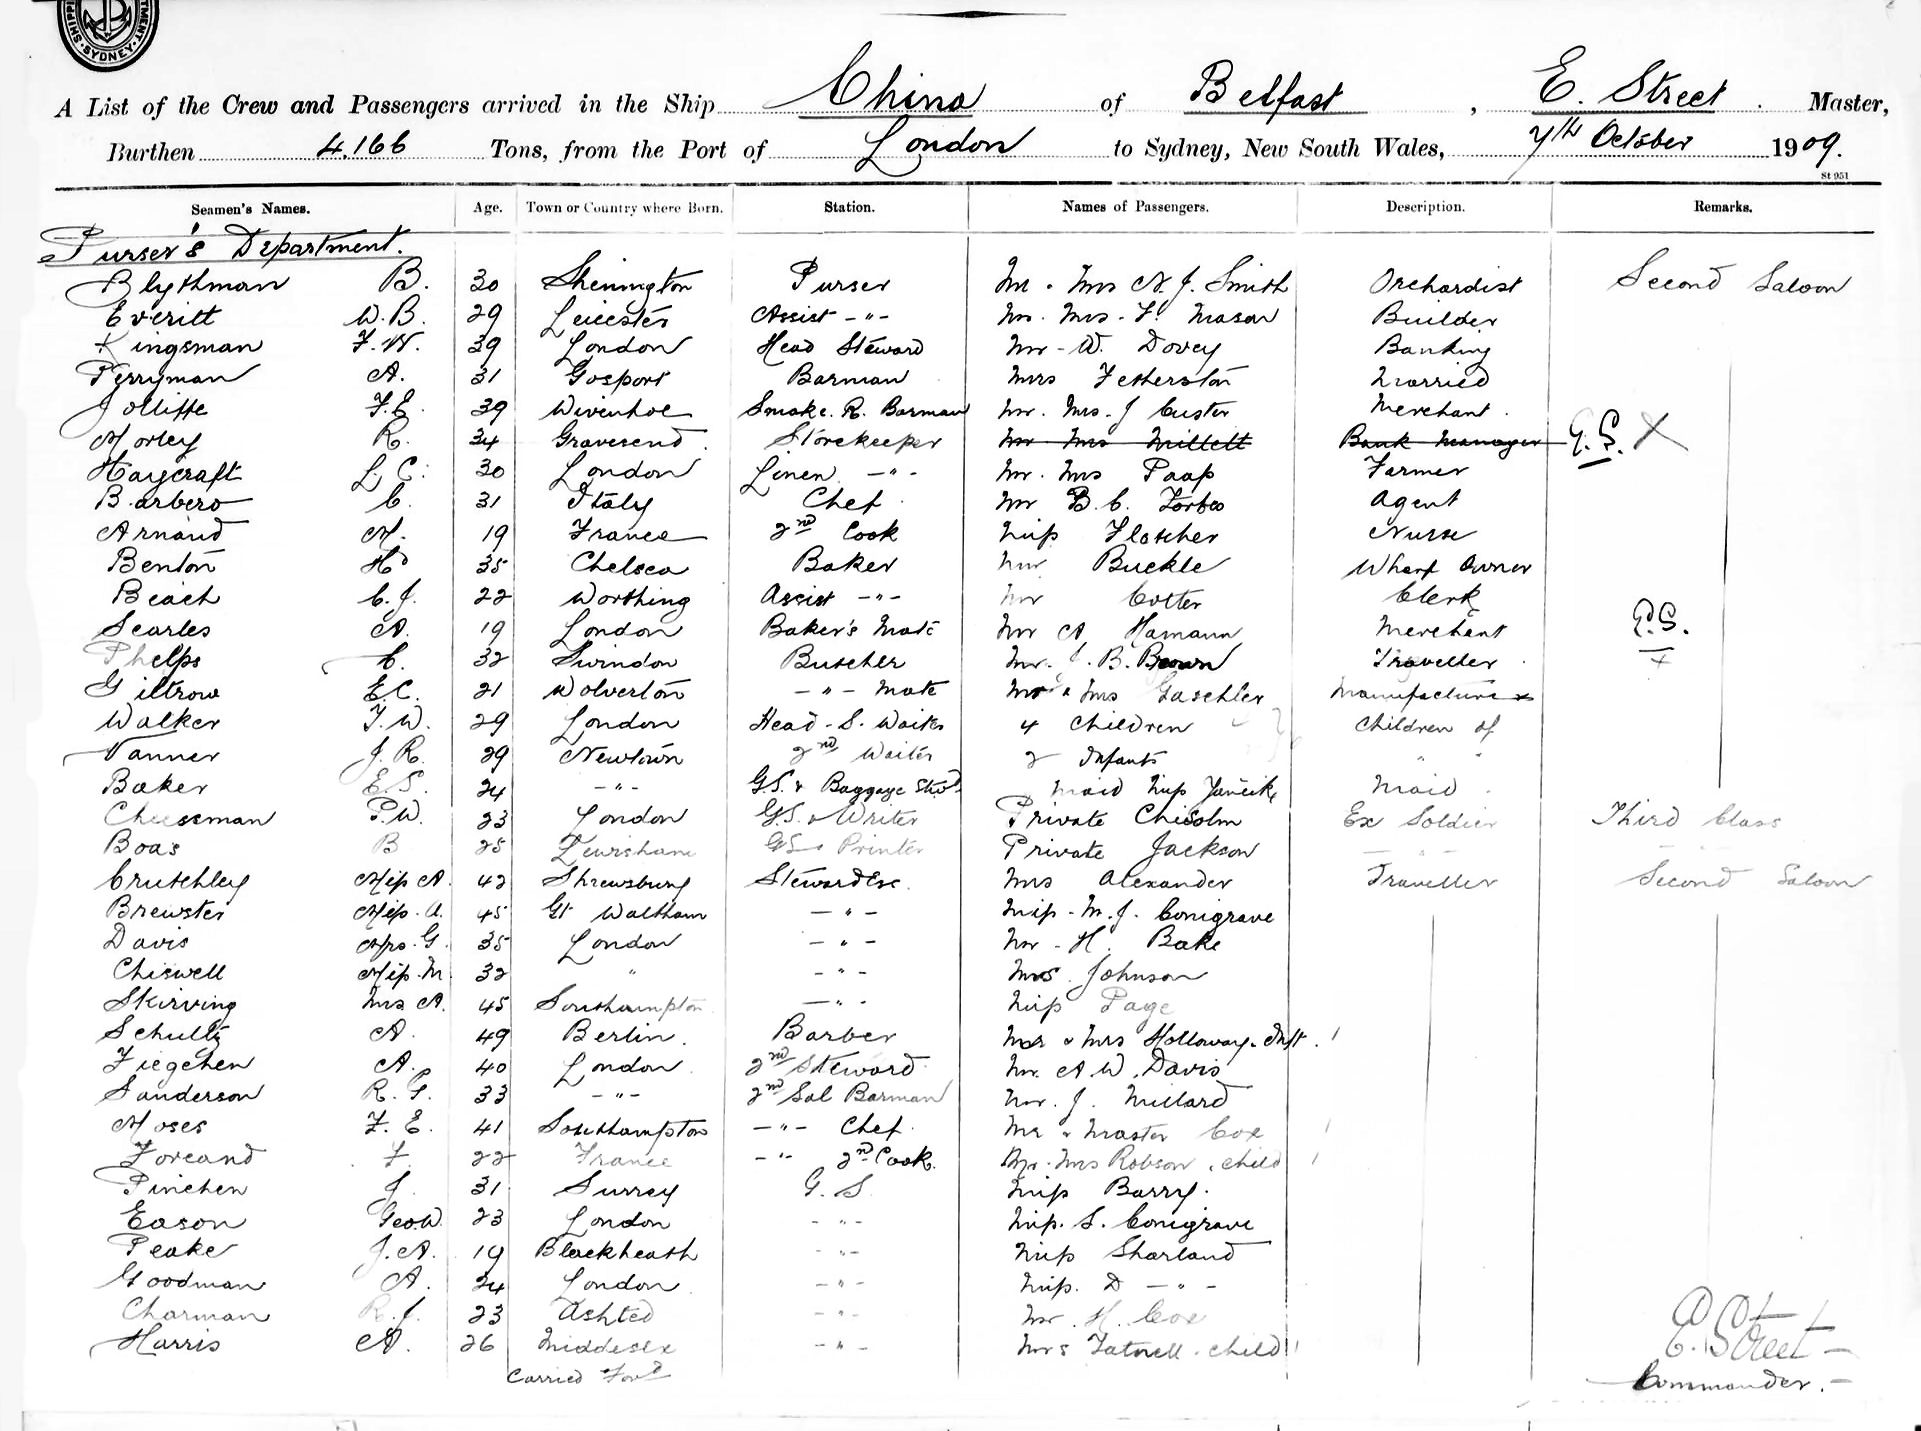 SYDNEY
A List of the Crew and Passengers arrived in the Ship China of Belfast, E. Street. Master,
Burthen 4.166 Tons, from the Port of London to Sydney, New South Wales, 7th October 1909.
St 951
Seamen's Names. Age. Town or Country where Born. Station. Names of Passengers. Description. Remarks.
Purser's Department.
Blythman B. 30 Shenington Purser Mr. Mrs N. J. Smith Orchardist Second Saloon
Everitt W. B. 29 Leicester Assist -"- Mr. Mrs. F. Mason Builder
Kingsman F. W. 39 London Head Steward Mr - W. Dovey Banking
Perryman A. 31 Gosport Barman Mrs Fetherston Married
Jolliffe F. E. 39 Wivenhoe Smoke. R. Barman Mr. Mrs. J Custer Merchant.
Morley R. 34 Gravesend. Storekeeper Mr Mrs Millett Bank Manager G. S. X
Haycraft L. C. 30 London Linen -"- Mr. Mrs Paap Farmer
Barbero C. 31 Italy Chef Mr B. C. Forbes Agent
Arnaud M. 19 France 2nd Cook Miss Fletcher Nurse
Benton Hd 35 Chelsea Baker Mr Buckle Wharf Owner
Beach C. J. 22 Worthing Assist -"- Mr Cotter Clerk
Searles A. 19 London Baker's Mate Mr A Hamann Merchant P.S.
Phelps C. 32 Swindon Butcher Mr. J. B. Brown Traveller x
Giltrow E. C. 21 Wolverton -"- Mate Mr & Mrs Gaschler Manufacturer
Walker F. W. 29 London Head - S. Waiter 4 Children Children of
Vanner J. R. 29 Newtown 2nd Waiter 2 Infants "
Baker E. S. 24 -"- G.S. & Baggage Stwd. Maid Miss Maid
Cheesman P. W. 23 London G.S. & Writer Private Chisolm Ex Soldier Third Class
Boas B 25 Lewisham GS & Printer Private Jackson -"-
Crutchley Miss A. 42 Shrewsbury Stewardess. Mrs Alexander Traveller Second Saloon
Brewster Miss. A. 45 Gt Waltham -"- Miss. M. J. Conigrave
Davis Mrs. G. 35 London -"- Mr - H. Bake
Chiswell Miss. M. 32 " -"- Mrs. Johnson
Skirving Mrs A. 45 Southampton -"- Miss Page
Schultz A. 49 Berlin. Barber Mr & Mrs Holloway. Inft. 1
Fiegehen A. 40 London 2nd Steward Mr. A W. Davis
Sanderson R. G. 33 -"- 2nd Sal Barman Mr. J. Millard
Moses F. E. 41 Southampton -"- Chef. Mr & Master Cox 1
Foreand F 22 France -"- 2nd Cook. Mr. Mrs Robson. child 1
Pinchen J. 31 Surrey G. S. Miss Barry.
Eason Geo W. 23 London -"- Miss. S. Conigrave
Peake J. A. 19 Blackheath -"- Miss Sharland
Goodman A. 24 London -"- Miss. D -"-
Charman R. J. 23 Ashted -"- Mr. H. Cox
Harris A. 26 Middlesex -"- Mrs Tatnell. child 1
Carried Ford
E. Street
Commander.